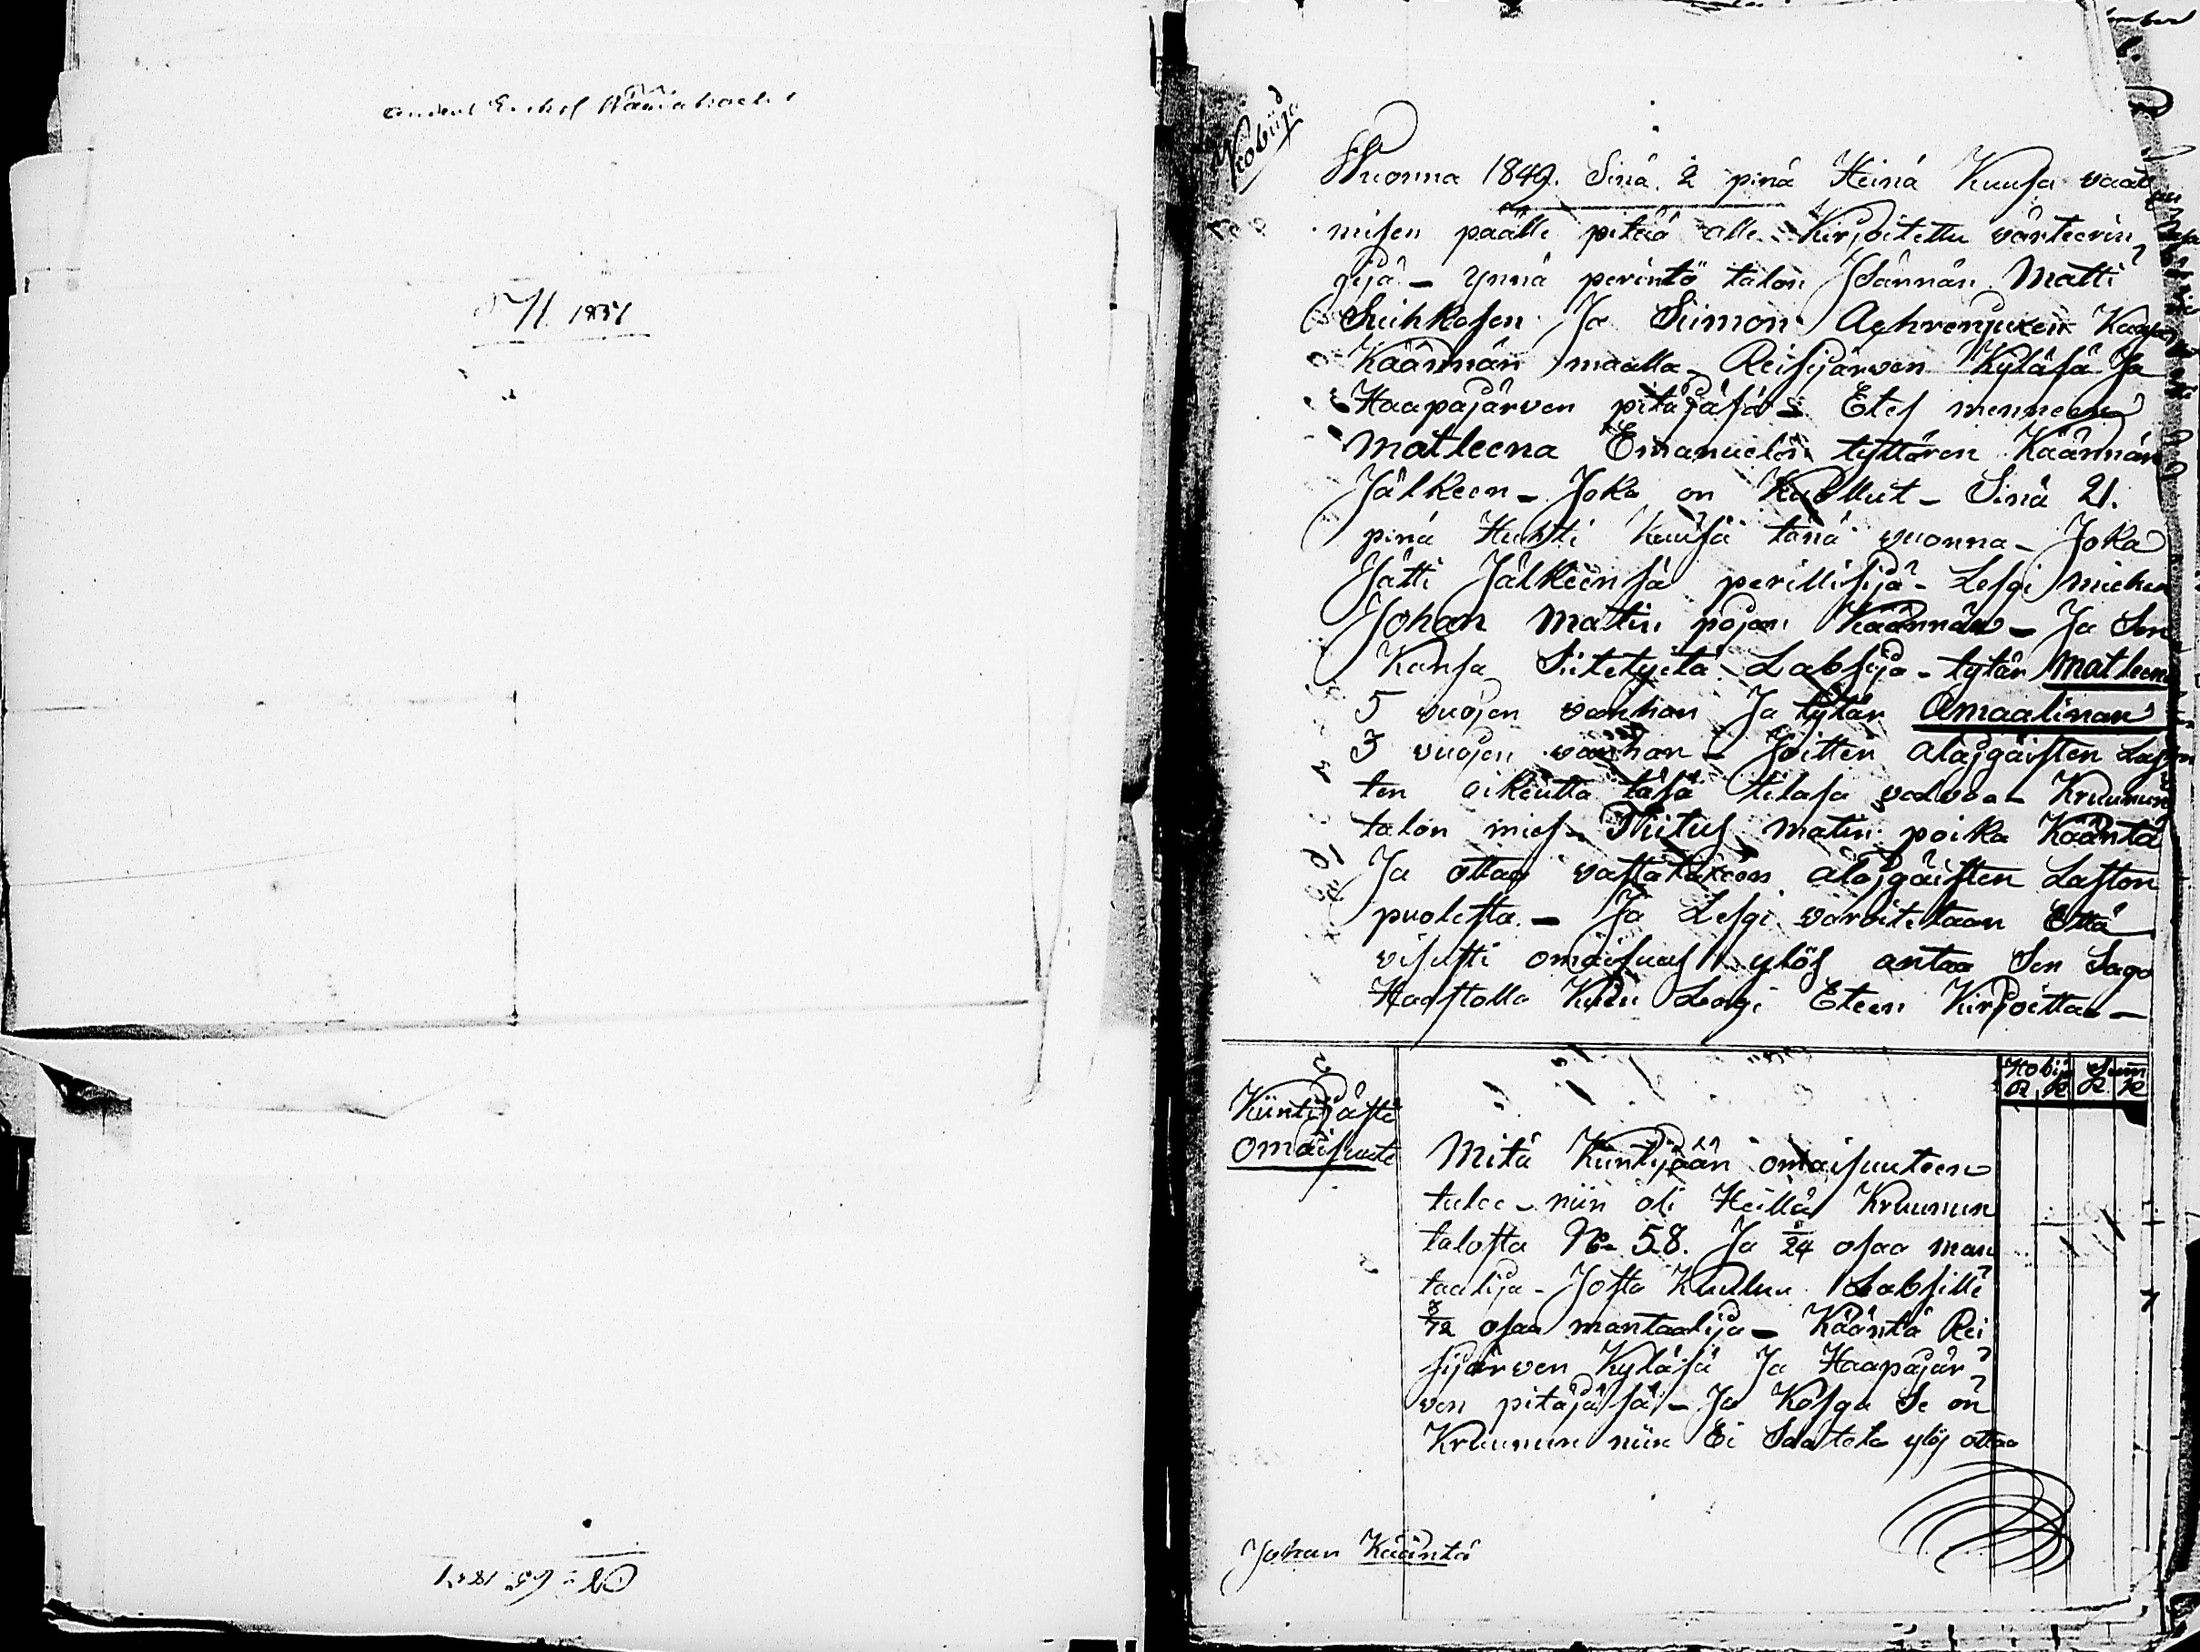 1851
Kobiija
Wuonna 1849. Sinä 2 pinä Heinä Kuusa vaati
misen päälle pitää alle Kirjoitettu värteerin
gijä - ynnä perintö talon Isännän Matti
Kiihkosen Ja Siimon
Käännän maalla - Reisijärven Kyläsä Ja
Haapajärven pitäjäsä - Etes menneen
Matleena Emanuelin tyttären Käännän
Jälkeen - Joka on Kuollut - Sinä 21.
pinä Huhti Kuusa tänä vuonna - Joka
Jätti Jälkeensä perillisijä - Lesgi miehen
Johan Matin pojan Käännän - Ja Sen
Kansa Siitetyitä Labsija - tytär Matleena
5 vuojen vanhan Ja tytär Amaalinan
3 vuojen vanhan - Joitten alajgäisten Lasten
ten oikeutta täsä tilasa valvoa - Kruunun
talon mies - Tiitus Matin poika Kääntä
Ja ottaa vastataksen alajgäisten Lasten
puolesta - Ja Lesgi varoitetaan Että
visusti omaisuus ylös antaa Sen Sago
Haastolla Kuin Lagi Eteen Kirjoittaa -
Kobija Sum
R K R K
Kiintijästä
omaisuute
Mitä Kiintijään omaisuuteen
tulee - niin oli Heillä Kruunun
talosta No 58. Ja 5/24 osaa man
taalija - Josta Kuuluu Labsille
osaa mantaalija - Kääntä Rei
sijärven Kyläsä Ja Haapajär
ven pitäjäsä - Ja Kosga Se on
Kruunun niin Ei Saa tata ylös ottaa
Johan Kääntä